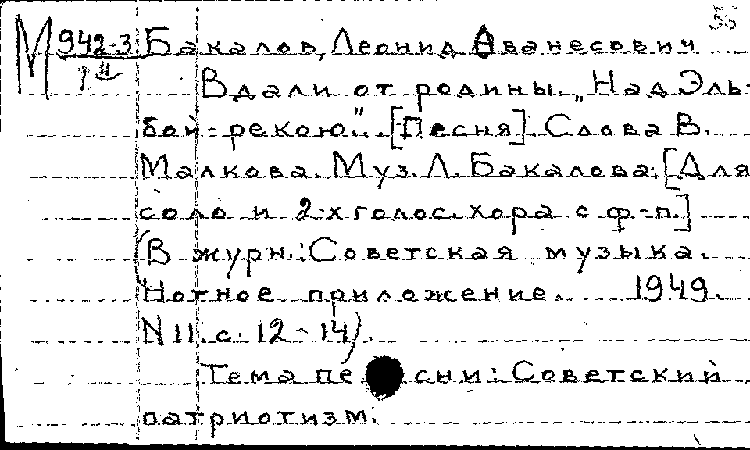 М 942-3 Бакалов, Леонид Аванесович
Вдали от родины. „Над Эль-
бой-рекою". [Песня]. Слова В.
Малкова. Муз. Л. Бакалова. [Для
соло и 2-х голос. хора с ф-п.]
(В журн.: Советская музыка.
Нотное приложение. 1949.
N 11. с. 12-14).
Тема песни: Советский
патриотизм.